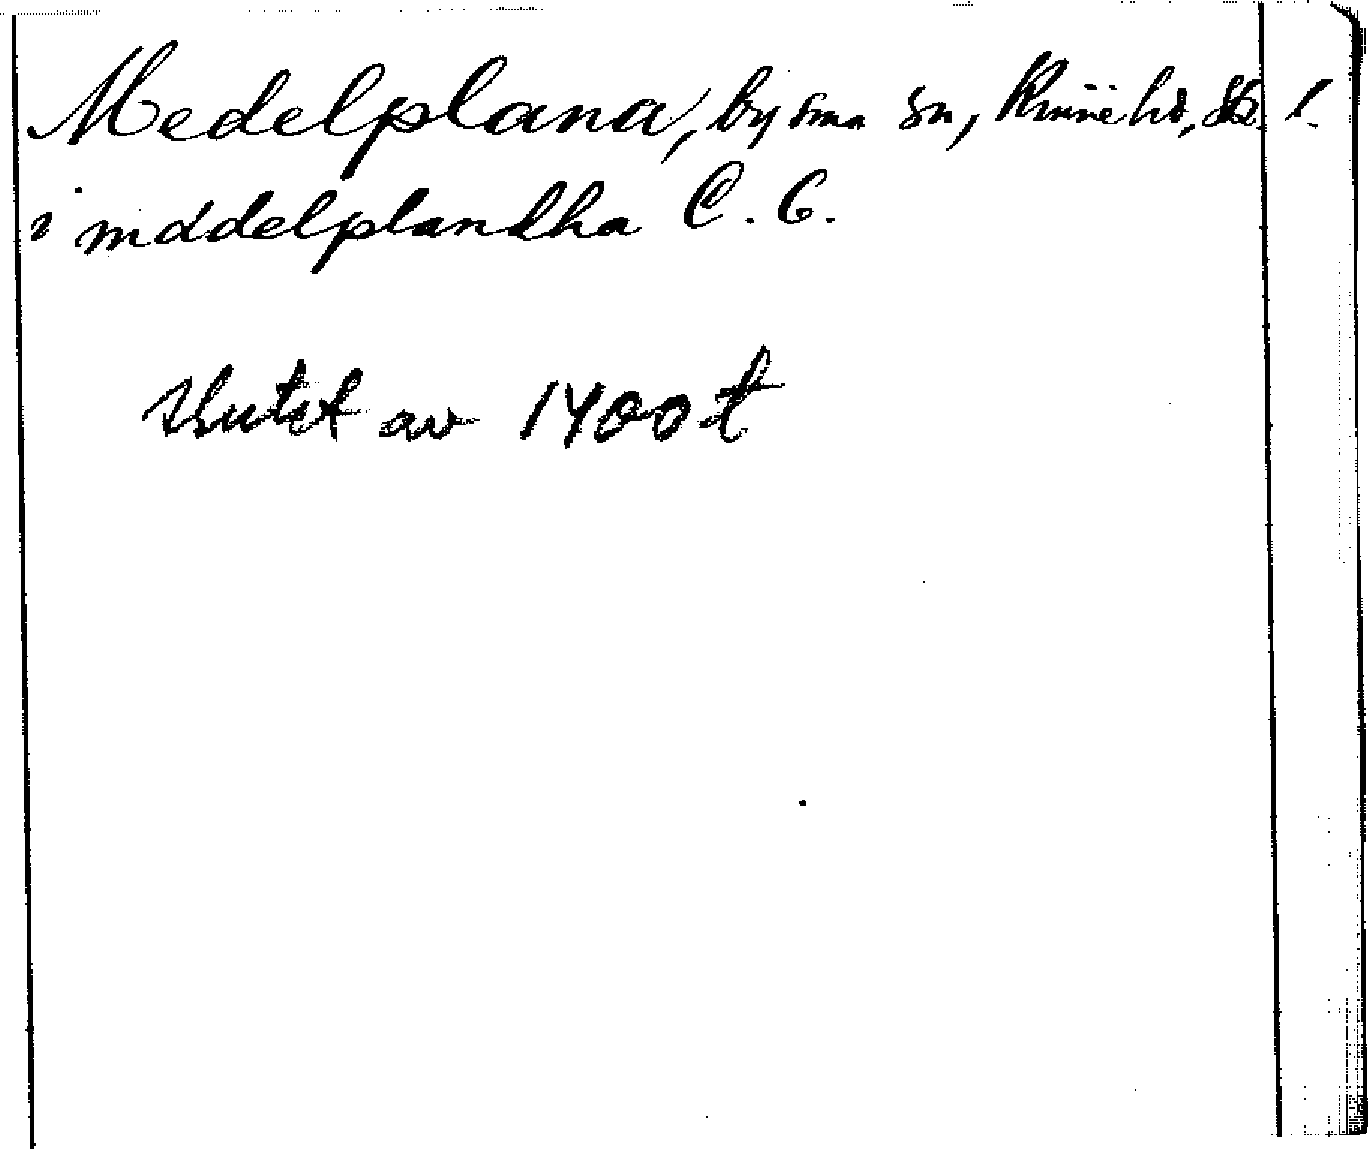 Medelplana, by sma sn, Kinne hd, Sk. l.
i mddelplandha C. C.
slutet av 1400 t